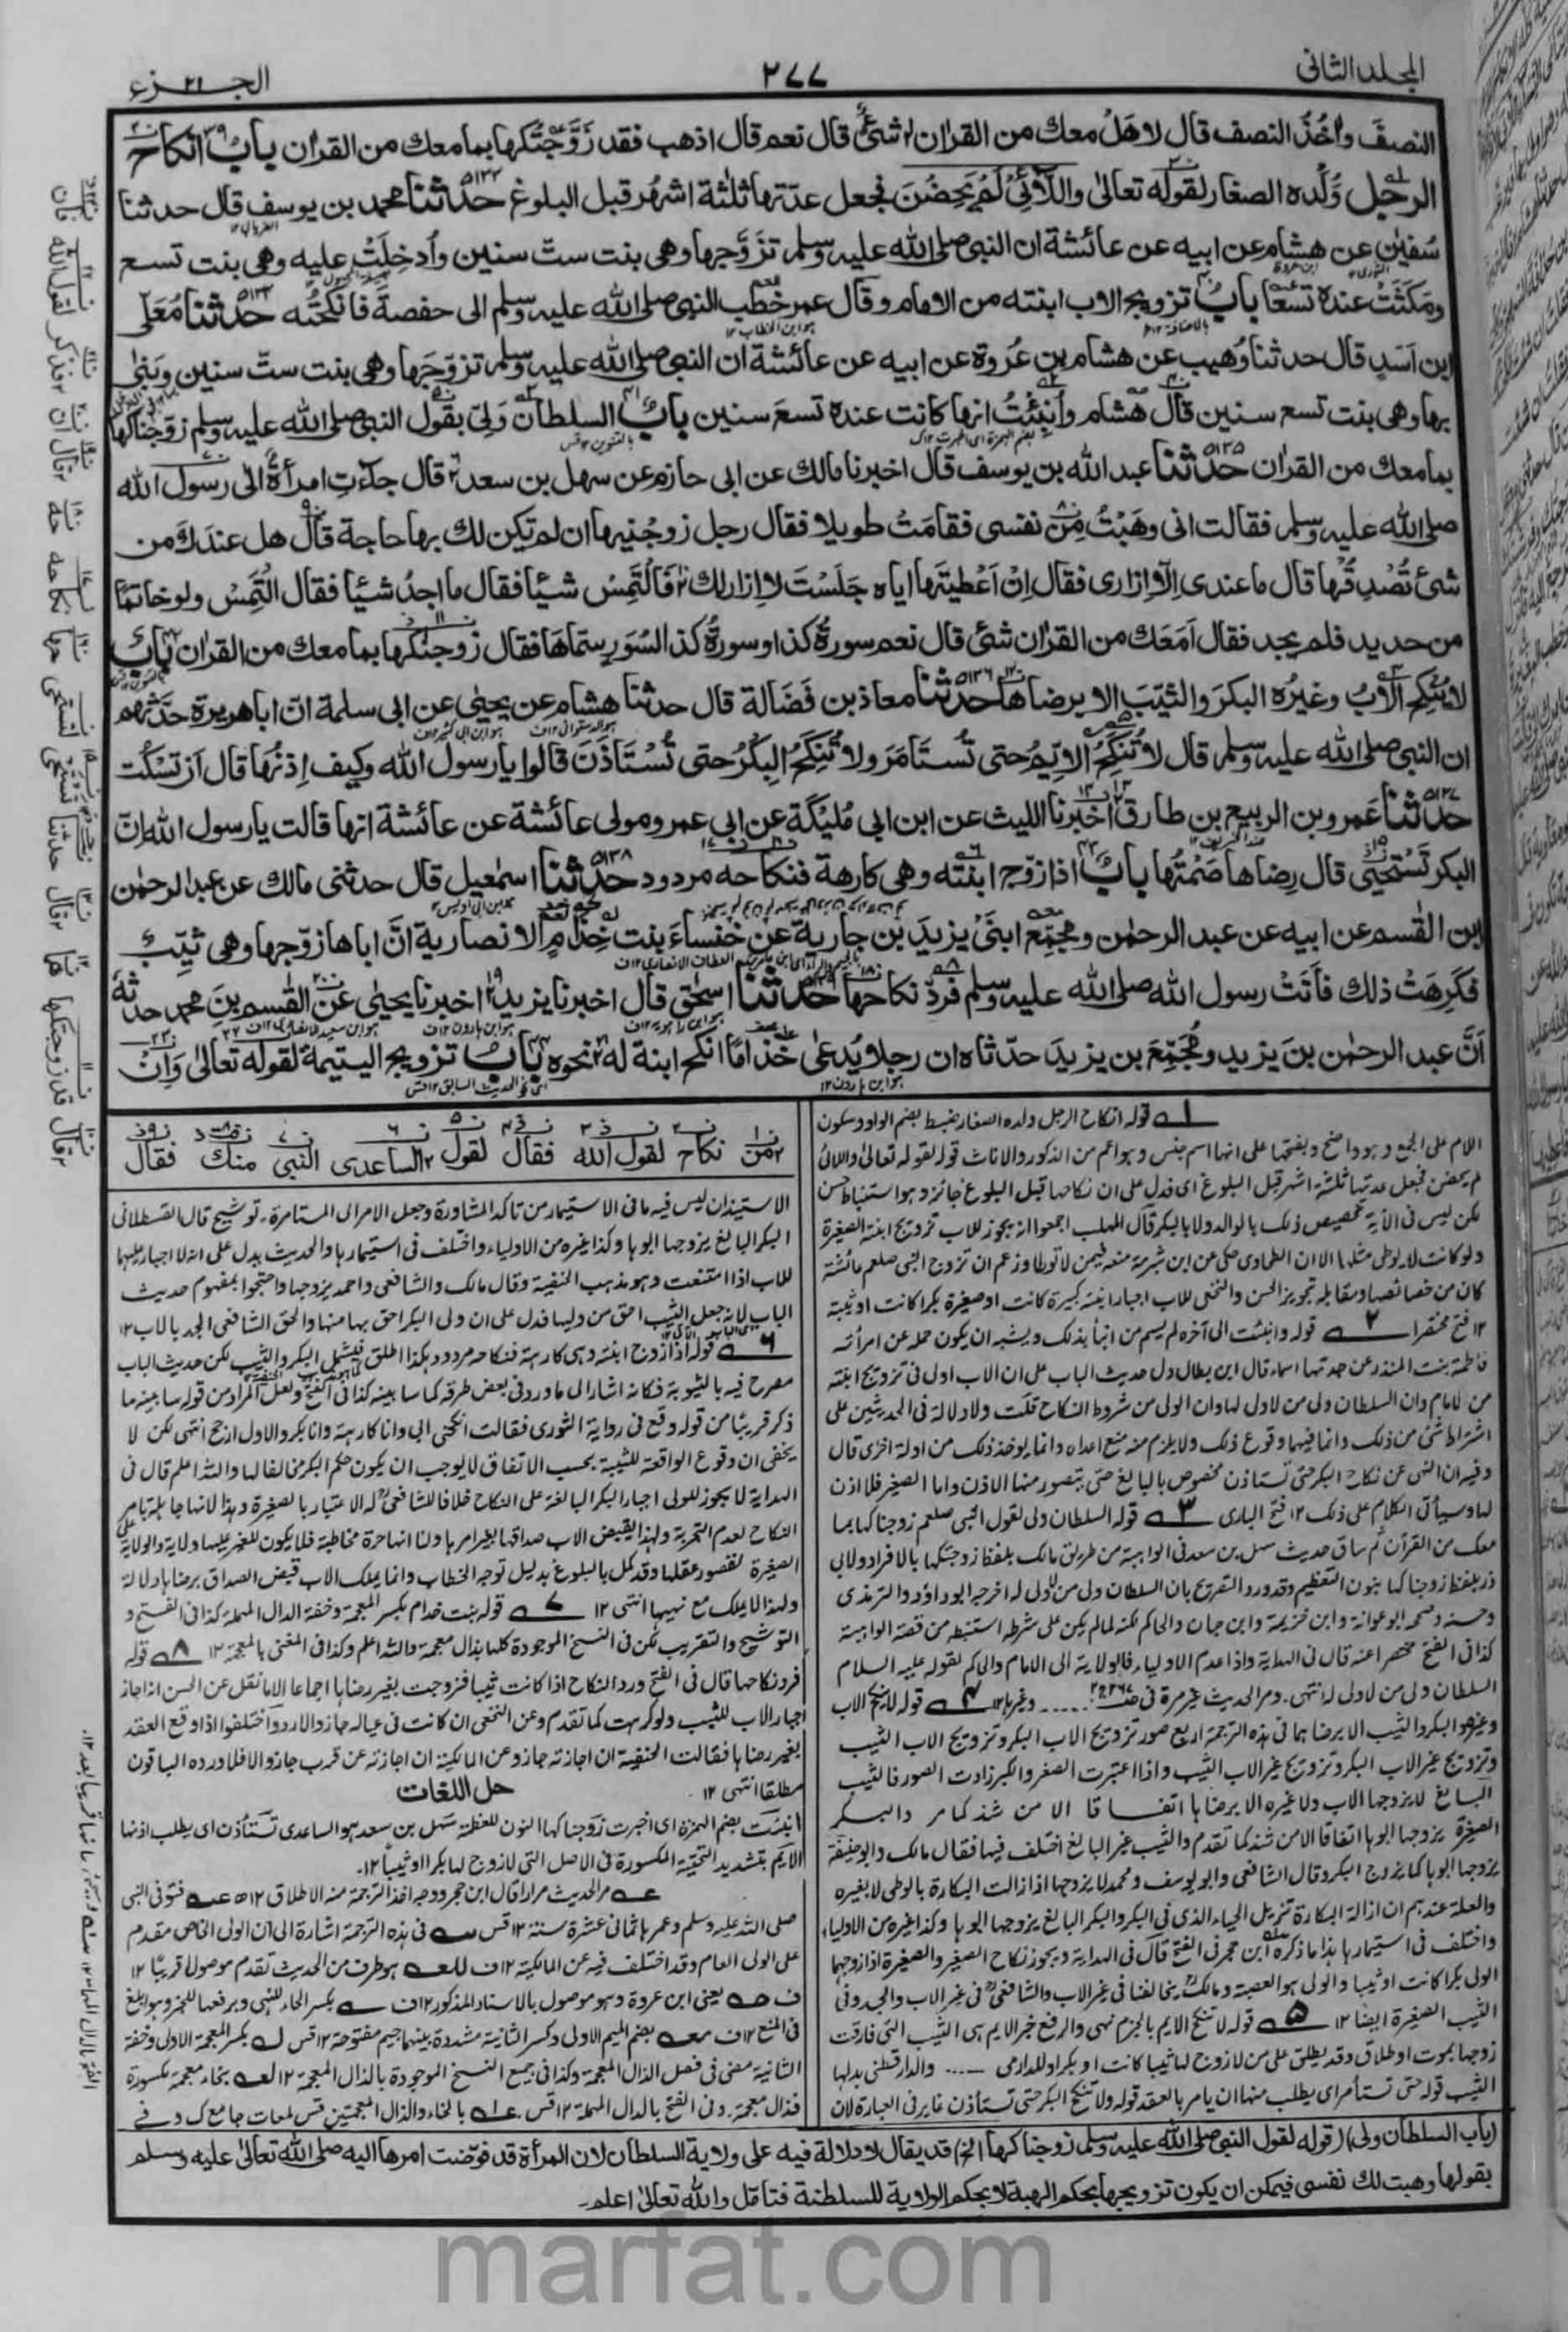 المجلد الثانی
٢٧٧
الجزء ٢١
النصفَ وأخُذُ النصف قال لا هَلْ معك من القراٰن شئ قال نعم قال اذهب فقد زَوَّجْتُكَها بما معك من القراٰن بابُ انكاح
الرجل وُلْدَه الصغار لقوله تعالیٰ واللَّائِیْ لَمْ يَحِضْنَ فجعل عدّتها ثلٰثة اشهُر قبل البلوغ حدثنا محمد بن يوسف قال حدثنا
سُفيٰن عن هشام عن ابيه عن عائشة ان النبی صلی الله عليه وسلم تزَوَّجها وهی بنت ستّ سنين وأُدخِلَتْ عليه وهی بنت تسع
ومَكَثَتْ عنده تسعًا بابُ تزويج الاب ابنته من الامام وقال عمر خطب النبی صلی الله عليه وسلم الی حفصة فانكحتُه حدثنا مُعَلّی
ابن اَسَدٍ قال حدثنا وُهيب عن هشام بن عُروة عن ابيه عن عائشة ان النبی صلی الله عليه وسلم تزوّجَها وهی بنت ستّ سنين وبَنٰی
بها وهی بنت تسع سنين قال هشام وأُنبِئْتُ انها كانت عنده تسعَ سنين بابٌ السلطان وَلِیّ بقول النبی صلی الله عليه وسلم زوّجناكها
بما معك من القراٰن حدثنا عبد الله بن يوسف قال اخبرنا مالك عن ابی حازم عن سهل بن سعد قال جاءتِ امرأةٌ الی رسول الله
صلی الله عليه وسلم فقالت انی وهَبْتُ مِنْ نفسی فقامَتْ طويلا فقال رجل زوِّجْنيها ان لم تكن لك بها حاجة قال هل عندك من
شئ تُصْدِقُها قال ما عندی اِلّا اِزاری فقال اِنْ اَعْطيتَها اياه جَلَسْتَ لا اِزار لك فَالْتَمِسْ شيئا فقال ما اجدُ شيئًا فقال الْتَمِسْ ولو خاتمًا
من حديد فلم يجد فقال اَمَعَك من القراٰن شئ قال نعم سورةُ كذا وسورةُ كذا لسُوَرٍ سمّاها فقال زوجنٰكها بما معك من القراٰن بابٌ
لا يُنكِح الابُ وغيرُه البكرَ والثيّبَ الا برضاها حدثنا معاذ بن فَضَالة قال حدثنا هشام عن يحيٰی عن ابی سلمة انّ ابا هريرة حدّثهم
ان النبی صلی الله عليه وسلم قال لا تُنْكَحُ الايّم حتی تُستَامَرَ ولا تُنْكَحُ البِكرُ حتی تُسْتَاذَنَ قالوا يا رسول الله وكيف اِذْنُها قال اَنْ تَسْكُت
حدثنا عَمرو بن الربيع بن طارق اخبرنا الليث عن ابن ابی مُليكة عن ابی عمرو مولی عائشة عن عائشة انها قالت يا رسول الله اِنّ
البكر تَسْتَحْيِی قال رِضاها صَمْتُها بابٌ اذا زوّج ابنته وهی كارهة فنكاحه مردود حدثنا اسمٰعيل قال حدثنی مالك عن عبد الرحمٰن
ابن القٰسم عن ابيه عن عبد الرحمٰن ومجمّع ابنَیْ يزيدَ بن جارية عن خنساءَ بنت خِذامٍ الانصارية انّ اباها زوّجها وهی ثيّب
فكَرِهَتْ ذلك فأتَتْ رسول الله صلی الله عليه وسلم فردّ نكاحها حدثنا اسحٰق قال اخبرنا يزيد اخبرنا يحيٰی عن القٰسم بنَ محمد حدثه
اَنَّ عبد الرحمٰن بنَ يزيد ومُجَمِّعَ بن يزيدَ حدّثاه ان رجلا يُدعٰی خذامًا انكح ابنة له نحوه بابُ تزويج اليتيمة لقوله تعالیٰ وَاِنْ
من نكاح لقول الله فقال لقول الساعدی النبی منك فقال
قوله انكاح الرجل ولده الصغار ضبط بضم الواو وسكون
اللام علی الجمع وهو واضح وبفتحها علی انها اسم جنس وهو اعم من الذكور والاناث قوله لقوله تعالیٰ واللائی
لم يحضن فجعل عدتها ثلثة اشهر قبل البلوغ ای فدل علی ان نكاحها قبل البلوغ جائز وهو استنباط حسن
لكن ليس فی الآية تخصيص ذلك بالوالد ولا بالبكر قال المهلب اجمعوا انه يجوز للاب تزويج ابنته الصغيرة
ولو كانت لا يوطی مثلها الا ان الطحاوی حكی عن ابن شبرمة منعه فيمن لا توطا وزعم ان تزوج النبی صلعم عائشة
كان من خصائصه ومقابله تجويز الحسن والنخعی للاب اجبار ابنته كبيرة كانت او صغيرة بكرا كانت او ثيبة
١٢ فتح مختصرا ٢ قوله وانبئت الی آخره لم يسم من انبأ بذلك ويشبه ان يكون حمله عن امرأته
فاطمة بنت المنذر عن جدتها اسماء قال ابن بطال دل حديث الباب علی ان الاب اولی فی تزويج ابنته
من الامام وان السلطان ولی من لا ولی لها وان الولی من شروط النكاح قلت ولا دلالة فی الحديثين علی
اشتراط شئ من ذلك وانما فيهما وقوع ذلك ولا يلزم منه منع ما عداه وانما يوخذ ذلك من ادلة اخری قال
وفيه ان النهی عن نكاح البكر حتی تستاذن مخصوص بالبالغ حتی يتصور منها الاذن واما الصغير فلا اذن
لها وسيأتی الكلام علی ذلك ١٢ فتح الباری ٣ قوله السلطان ولی لقول النبی صلعم زوجناكها بما
معك من القرآن ثم ساق حديث سهل بن سعد فی الواهبة من طريق مالك بلفظ زوجتكها بالافراد ولابی
ذر بلفظ زوجناكها بنون التعظيم وقد ورد التصريح بان السلطان ولی من لا ولی له اخرجه ابو داؤد والترمذی
وحسنه وصححه ابو عوانة وابن خزيمة وابن حبان والحاكم لكنه لما لم يكن علی شرطه استنبطه من قصة الواهبة
كذا فی الفتح مختصرا عنه قال فی الهداية واذا عدم الاولياء فالولاية الی الامام والحاكم لقوله عليه السلام
السلطان ولی من لا ولی له انتهی. ومر الحديث غير مرة فی وغيرها ١٢ ٤ قوله لا ينكح الاب
وغيره البكر والثيب الا برضاهما فی هذه الترجمة اربع صور تزويج الاب البكر وتزويج الاب الثيب
وتزويج غير الاب البكر وتزويج غير الاب الثيب واذا اعتبرت الصغر والكبر زادت الصور فالثيب
البالغ لا يزوجها الاب ولا غيره الا برضاها اتفاقا الا من شذ كما مر والبكر
الصغيرة يزوجها ابوها اتفاقا الا من شذ كما تقدم والثيب غير البالغ اختلف فيها فقال مالك وابو حنيفة
يزوجها ابوها كما يزوج البكر وقال الشافعی وابو يوسف ومحمد لا يزوجها اذا زالت البكارة بالوطی لا بغيره
والعلة عندهم ان ازالة البكارة تزيل الحياء الذی فی البكر والبكر البالغ يزوجها ابوها وكذا غيره من الاولياء
واختلف فی استيمارها هذا ما ذكره ابن حجر فی الفتح قال فی الهداية ويجوز نكاح الصغير والصغيرة اذا زوجهما
الولی بكرا كانت او ثيبا والولی هو العصبة ومالك يخالفنا فی غير الاب والشافعی فی غير الاب والجد وفی
الثيب الصغيرة ايضا ١٢ ٥ قوله لا تنكح الايم بالجزم نهی والرفع خبر الايم هی الثيب التی فارقت
زوجها بموت او طلاق وقد يطلق علی من لا زوج لها ثيبا كانت او بكرا وللدارمی والدارقطنی بدلها
الثيب قوله حتی تستأمر ای يطلب منها ان يامر بالعقد قوله ولا تنكح البكر حتی تستأذن غاير فی العبارة لان
الاستيذان ليس فيه ما فی الاستيمار من تاكد المشاورة وجعل الامر الی المستامرة. توشيح قال القسطلانی
البكر البالغ يزوجها ابوها وكذا غيره من الاولياء واختلف فی استيمارها والحديث يدل علی انه لا اجبار عليها
للاب اذا امتنعت وهو مذهب الحنفية وقال مالك والشافعی واحمد يزوجها واحتجوا بمفهوم حديث
الباب لانه جعل الثيب احق من وليها فدل علی ان ولی البكر احق بها منها والحق الشافعی الجد بالاب ١٢
٦ قوله اذا زوج ابنته وهی كارهة فنكاحه مردود هكذا اطلق فيشمل البكر والثيب لكن حديث الباب
مصرح فيه بالثيوبة فكانه اشار الی ما ورد فی بعض طرقه كما سابينه كذا فی الفتح ولعل المراد من قوله سابينه ما
ذكر قريبًا من قوله وقع فی رواية الثوری فقالت انكحنی ابی وانا كارهة وانا بكر والاول ارجح انتهی لكن لا
يخفی ان وقوع الواقعة للثيبة بحسب الاتفاق لا يوجب ان يكون حكم البكر مخالفا لها والله اعلم قال فی
الهداية لا يجوز للولی اجبار البكر البالغة علی النكاح خلافا للشافعی له الاعتبار بالصغيرة وهذا لانها جاهلة بامر
النكاح لعدم التجربة ولهذا يقبض الاب صداقها بغير امرها ولنا انها حرة مخاطبة فلا يكون للغير عليها ولاية والولاية علی
الصغيرة لقصور عقلها وقد كمل بالبلوغ بدليل توجه الخطاب وانما يملك الاب قبض الصداق برضاها دلالة
ولهذا لا يملك مع نهيها انتهی ١٢ ٧ قوله بنت خدام بكسر المعجمة وخفة الدال المهملة كذا فی الفتح و
التوشيح والتقريب لكن فی النسخ الموجودة كلها بذال معجمة والله اعلم وكذا فی المغنی بالمعجمة ١٢ ٨ قوله
فرد نكاحها قال فی الفتح ورد النكاح اذا كانت ثيبا فزوجت بغير رضاها اجماعا الا ما نقل عن الحسن انه اجاز
اجبار الاب للثيب ولو كرهت كما تقدم وعن النخعی ان كانت فی عياله جاز والا رد واختلفوا اذا وقع العقد
بغير رضاها فقالت الحنفية ان اجازته جاز وعن المالكية ان اجازته عن قرب جاز والا فلا ورده الباقون
مطلقا انتهی ١٢
حل اللغات
انبئت بضم الهمزة ای اخبرت زوجناكها النون للعظمة سهل بن سعد هو الساعدی تستأذن ای يطلب اذنها
الايم بتشديد التحتية المكسورة فی الاصل التی لا زوج لها بكرا او ثيبا ١٢.
مر الحديث مرارا قال ابن حجر ووجه اخذ الترجمة منه الاطلاق ١٢ فتوفی النبی
صلی الله عليه وسلم وعمرها ثمانی عشرة سنة ١٢ قس فی هذه الترجمة اشارة الی ان الولی الخاص مقدم
علی الولی العام وقد اختلف فيه عن المالكية ١٢ ف هو طرف من الحديث تقدم موصولا قريبًا ١٢
ف يعنی ابن عروة وهو موصول بالاسناد المذكور ١٢ ف بكسر الحاء للنهی وبرفعها للخبر وهو ابلغ
فی المنع ١٢ ف بضم الميم الاولی وكسر الثانية مشددة بينهما جيم مفتوحة ١٢ قس بكسر المعجمة الاولی وخفة
الثانية مضی فی فصل الذال المعجمة وكذا فی جميع النسخ الموجودة بالذال المعجمة ١٢ بخاء معجمة مكسورة
فذال معجمة. وفی الفتح بالدال المهملة ١٢ قس. بالخاء والذال المعجمتين قس
(باب السلطان ولی) (قوله لقول النبی صلی الله عليه وسلم زوجناكها الخ) قد يقال لا دلالة فيه علی ولاية السلطان لان المرأة قد فوّضت امرها اليه صلی الله تعالیٰ عليه وسلم
بقولها وهبت لك نفسی فيمكن ان يكون تزويجها بحكم الهبة لا بحكم الولاية للسلطنة فتامّل والله تعالیٰ اعلم.
marfat.com